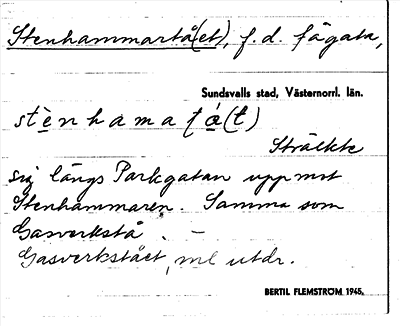 Stenhammartå(et), f.d. fägata,
Sundsvalls stad, Västernorrl. län.
stènhamaţá(t)
Sträckte
sig längs Parkgatan upp mot
Stenhammaren. Samma som
Gasverkstå. –
Gasverkstået, ml utdr.
BERTIL FLEMSTRÖM 1945.